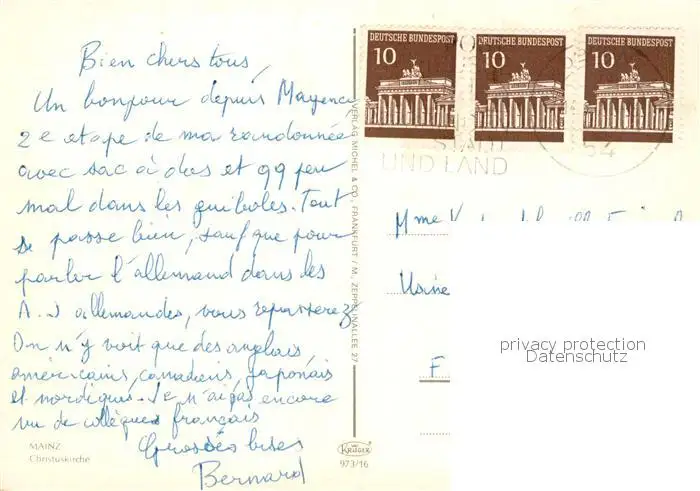 Bien chers tous,
Un bonjour depuis Mayence
2e etape de ma randonnée
avec sac à dos et qq peu
mal dans les guiboles. Tout
se passe bien, sauf que pour
parler l'allemand dans les
A.J allemandes, vous repasserez
On n'y voit que des anglais
américains, canadiens, japonais
et nordiques. Je n'ai pas encore
vu de collègues français
Grosses bises
Bernard
MAINZ
Christuskirche
VERLAG MICHEL & CO., FRANKFURT / M., ZEPPELINALLEE 27
KRÜGER
973/16
DEUTSCHE BUNDESPOST
10
DEUTSCHE BUNDESPOST
10
DEUTSCHE BUNDESPOST
10
STADT
UND LAND
54
Mme
Usine
F
privacy protection
Datenschutz